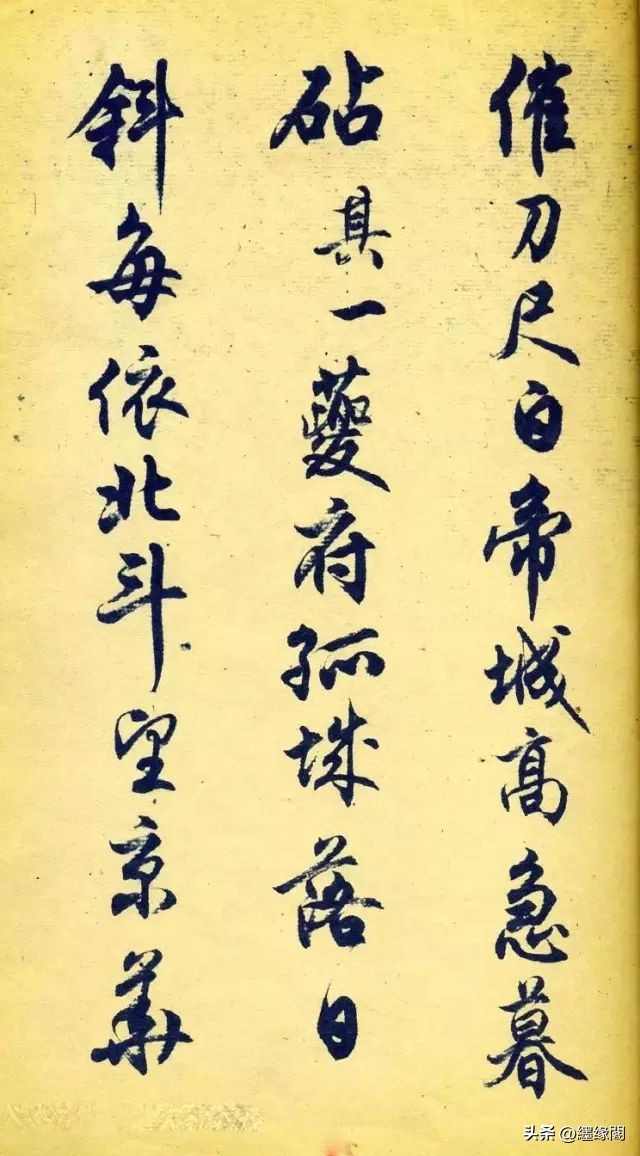 催刀尺白帝城高急暮
砧其一夔府孤城落日
斜每依北斗望京華
头条 @纆缘閣